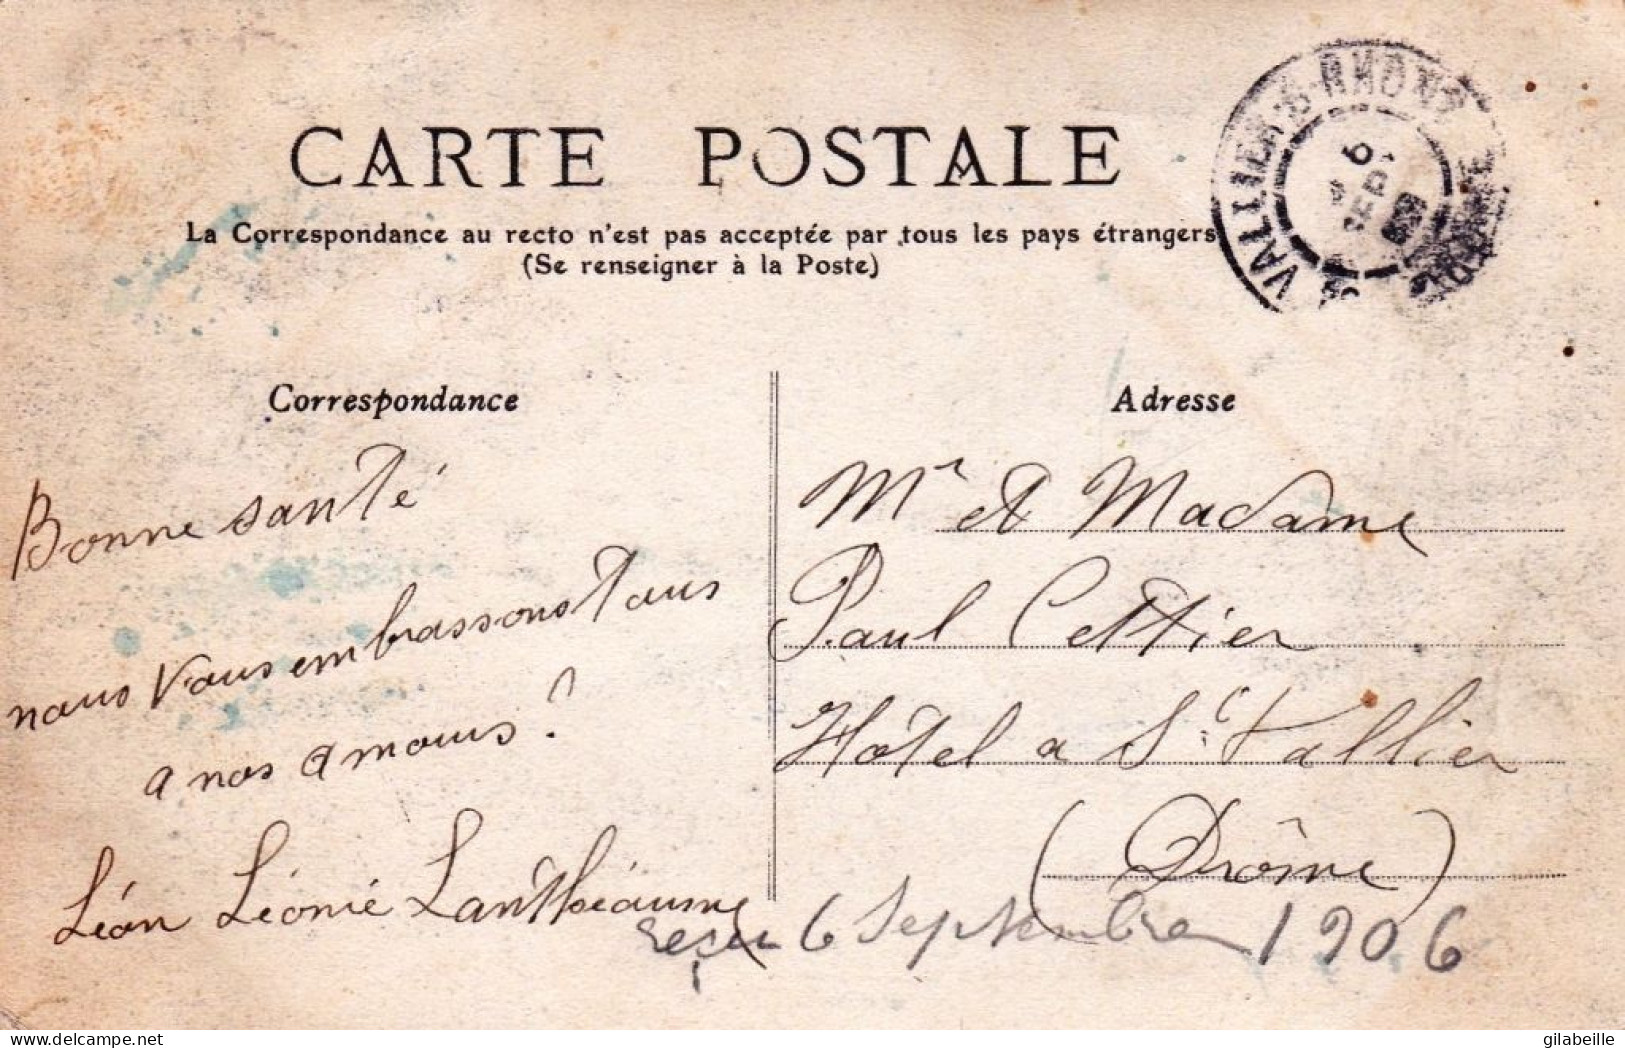 CARTE POSTALE
La Correspondance au recto n'est pas acceptée par tous les pays étrangers
(Se renseigner à la Poste)
VALLIER-S-RHONE
6
SEPT
Correspondance
Bonne santé
nous vous embrassons tous
a nos amours ?
Léon Léonie Lanthéaume
Adresse
Mr et Madame
Paul Cettier
Hôtel a St Vallier
(Drôme)
reçu 6 Septembre 1906
delcampe.net
gilabeille